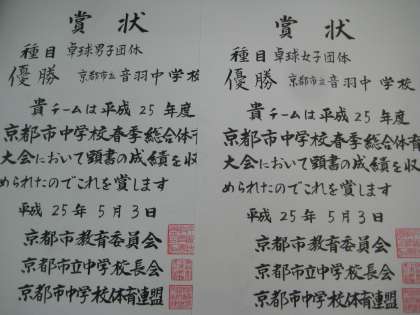 賞状
種目 卓球男子団体
優勝 京都市立音羽中学校
貴チームは平成25年度
京都市中学校春季総合体育
大会において頭書の成績を収
められたのでこれを賞します
平成25年5月3日
京都市教育委員会
京都市立中学校長会
京都市中学校体育連盟
賞状
種目 卓球女子団体
優勝 京都市立音羽中学校
貴チームは平成25年度
京都市中学校春季総合体育
大会において頭書の成績を収
められたのでこれを賞します
平成25年5月3日
京都市教育委員会
京都市立中学校長会
京都市中学校体育連盟